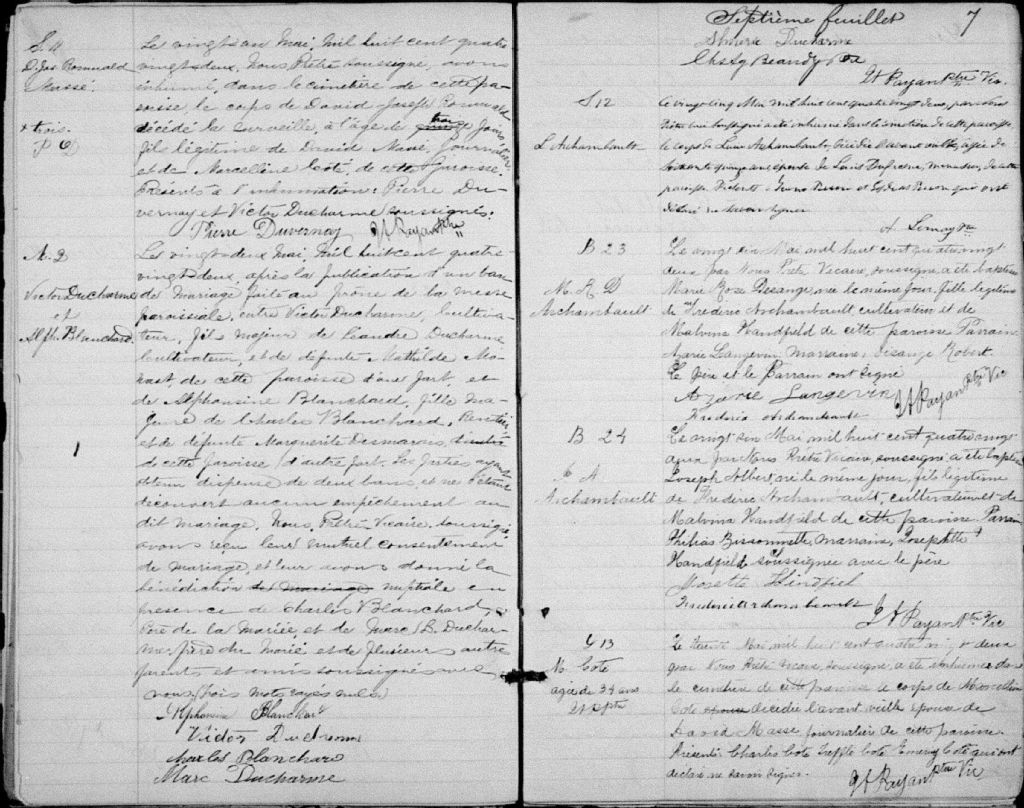 S. 11
D. Jos. Romuald
Massé.
+ trois.
P D
Le vingt un Mai, Mil huit cent quatre
vingt deux, Nous Prêtre soussigné, avons
inhumé, dans le cimetière de cette pa-
roisse le corps de David Joseph Romuald
décédé la surveille, à l'âge de trois jours
fils légitime de David Massé, Journalier
et de Marcelline Coté, de cette Paroisse.
Présents à l'inhumation: Pierre Du-
vernay et Victor Ducharme soussignés.
Pierre Duvernay J A Payan ptre
M. 2
Victor Ducharme
et
Alph. Blanchard.
1
Le vingt-deux Mai, Mil huit cent quatre
vingt deux, après la publication d'un ban
de mariage faite au prône de la messe
paroissiale, entre Victor Ducharme, Cultiva-
teur, fils majeur de Leandre Ducharme
Cultivateur, et de défunte Mathilde Mo-
nast, de cette paroisse d'une part, et
de Alphonsine Blanchard, fille ma-
jeure de Charles Blanchard, Rentier
et de défunte Marguerite Desmarais,
de cette paroisse d'autre part. Les parties ayant
obtenu dispense de deux bans, et ne s'étant
découvert aucun empêchement au
dit mariage, Nous, Prêtre Vicaire, soussigné,
avons reçu leur mutuel consentement
de mariage, et leur avons donné la
bénédiction de mariage nuptiale en
présence de Charles Blanchard,
Père de la Mariée, et de Marc B. Duchar-
me, frère du Marié et de plusieurs autres
parents et amis soussignés avec
nous, trois mots rayés nuls.
Alphonsine Blanchard
Victor Ducharme
Charles Blanchard
Marc Ducharme
Septième feuillet 7
Ducharme
J A Payan ptre Vic.
S 12
L Archambault
Le vingt cinq Mai mil huit cent quatre vingt deux, par Nous
Prêtre soussigné a été inhumé dans le cimetière de cette paroisse
le corps de Archambault, décédée l'avant veille, âgée de
soixante quinze ans épouse de Louis Dufresne, de cette
paroisse. Présents qui ont
déclaré ne savoir signer
A. Lemay ptre
B 23
M. R. D
Archambault
Le vingt six Mai mil huit cent quatre vingt
deux par Nous Prêtre Vicaire, soussigné a été baptisée
Marie Rose Desange, née le même jour, fille légitime
de Frederic Archambault cultivateur et de
Malvina Handfield de cette paroisse. Parrain
Azarie Langevin, Marraine, Desange Robert.
Le père et le Parrain ont signé
Azarie Langevin
Frederic Archambault
J A Payan ptre Vic
B 24
J. A.
Archambault
Le vingt six Mai mil huit cent quatre vingt
deux par Nous Prêtre Vicaire, soussigné a été baptisé
Joseph Albert, né le même jour, fils légitime
de Frederic Archambault, cultivateur et de
Malvina Handfield de cette paroisse. Parrain
Philias Bissonnette, marraine, Josephte
Handfield soussignée avec le père
Josette Hindfiel
Frederic archambault
J A Payan ptre Vic
S 13
M. Coté
agée de 34 ans
Le trente Mai mil huit cent quatre vingt deux
par Nous Prêtre Vicaire, soussigné, a été inhumé dans
le cimetière de cette paroisse le corps de Marcelline
Coté décédée l'avant veille épouse de
David Masse journalier de cette paroisse.
Présents Charles Coté Treffle Coté Emery Coté qui ont
déclaré ne savoir signer.
J A Payan ptre Vic